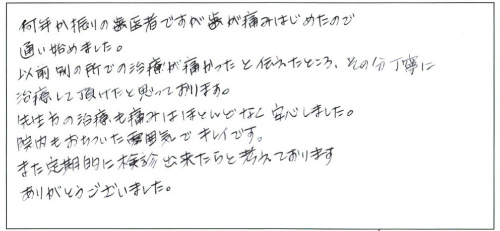 何年か振りの歯医者ですが歯が痛みはじめたので
通い始めました。
以前別の所での治療が痛かったと伝えたところ、その分丁寧に
治療して頂けたと思っております。
先生方の治療も痛みはほとんどなく安心しました。
院内もおちついた雰囲気でキレイです。
また定期的に検診出来たらと考えております
ありがとうございました。